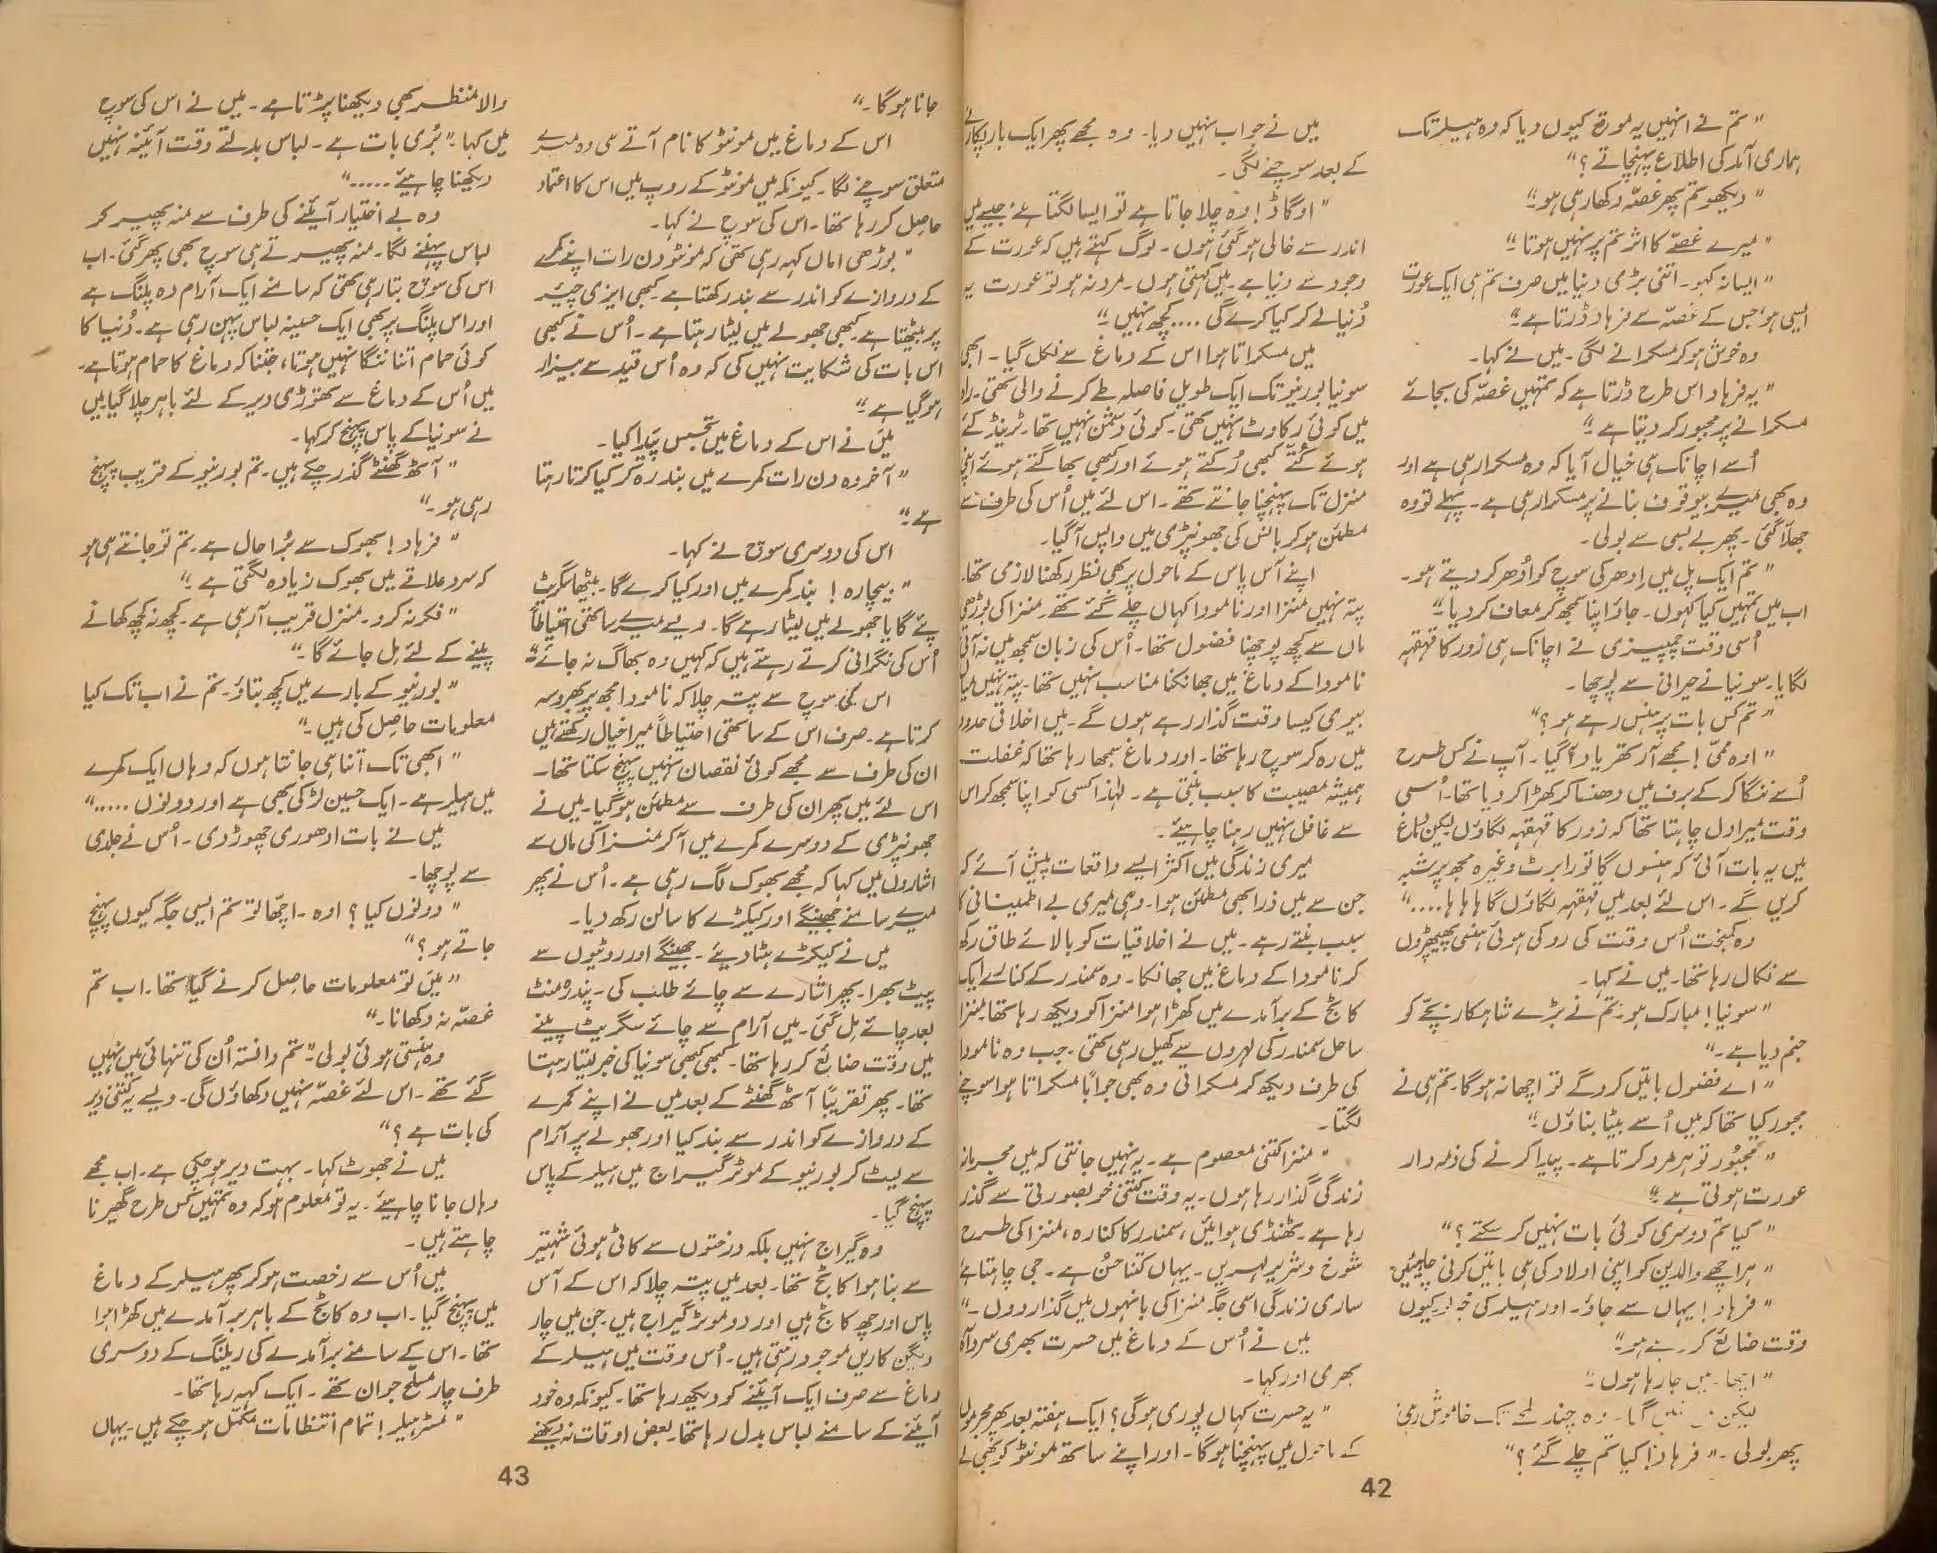 "تم نے انہیں یہ موقع کیوں دیا کہ وہ ہیلر تک
ہماری آمد کی اطلاع پہنچاتے؟"
"دیکھو تم پھر غصّہ دکھا رہی ہو۔"
"میرے غصّے کا اثر تم پر نہیں ہوتا۔"
"ایسا نہ کہو۔ اتنی بڑی دنیا میں صرف تم ہی ایک عورت
ایسی ہو، جس کے غصّہ سے فرہاد ڈرتا ہے۔"
وہ خوش ہو کر مسکرانے لگی۔ میں نے کہا۔
"یہ فرہاد اس طرح ڈرتا ہے کہ تمہیں غصّہ کی بجائے
مسکرانے پر مجبور کر دیتا ہے۔"
اُسے اچانک ہی خیال آیا کہ وہ مسکرا رہی ہے اور
وہ بھی میرے بیوقوف بنانے پر مسکرا رہی ہے۔ پہلے تو وہ
جھلّا گئی۔ پھر بے بسی سے بولی۔
"تم ایک پل میں اِدھر کی سوچ کو اُدھر کر دیتے ہو۔
اب میں تمہیں کیا کہوں۔ جاؤ اپنا سمجھ کر معاف کر دیا۔"
اُسی وقت چمپیزی نے اچانک ہی زور کا قہقہہ
لگایا۔ سونیا نے حیرانی سے پوچھا۔
"تم کس بات پر ہنس رہے ہو؟"
"اوہ ممّی! مجھے آرتھر یاد آ گیا۔ آپ نے کس طرح
اُسے ننگا کر کے برف میں دھنسا کر کھڑا کر دیا تھا۔ اُسی
وقت میرا دل چاہتا تھا کہ زور کا قہقہہ لگاؤں لیکن دماغ
میں یہ بات آئی کہ ہنسوں گا تو رابرٹ وغیرہ مجھ پر شبہ
کریں گے۔ اس لئے بعد میں قہقہہ لگاؤں گا ہا ہا ہا...."
وہ کمبخت اُس وقت کی روکی ہوئی ہنسی پھیپھڑوں
سے نکال رہا تھا۔ میں نے کہا۔
"سونیا! مبارک ہو۔ تم نے بڑے شاہکار بچّے کو
جنم دیا ہے۔"
"اے فضول باتیں کرو گے تو اچھا نہ ہو گا۔ تم ہی نے
مجبور کیا تھا کہ میں اُسے بیٹا بناؤں۔"
"مجبُور تو ہر مرد کرتا ہے۔ پیدا کرنے کی ذمہ دار
عورت ہوتی ہے۔"
"کیا تم دوسری کوئی بات نہیں کر سکتے؟"
"ہر اچھے والدین کو اپنی اولاد کی ہی باتیں کرنی چاہئیں۔"
"فرہاد! یہاں سے جاؤ۔ اور ہیلر کی خبر لو۔ کیوں
وقت ضائع کر رہے ہو۔"
"اچھا۔ میں جا رہا ہوں۔"
لیکن میں نہیں گیا۔ وہ چند لمحے تک خاموش رہی
پھر بولی۔ "فرہاد! کیا تم چلے گئے؟"
میں نے جواب نہیں دیا۔ وہ مجھے پھر ایک بار پکارنے
کے بعد سوچنے لگی۔
"او گاڈ! وہ چلا جاتا ہے تو ایسا لگتا ہے جیسے میں
اندر سے خالی ہو گئی ہوں۔ لوگ کہتے ہیں کہ عورت کے
وجود سے دنیا ہے۔ میں کہتی ہوں۔ مرد نہ ہو تو عورت یہ
دُنیا لے کر کیا کرے گی.... کچھ نہیں۔"
میں مسکراتا ہوا اس کے دماغ سے نکل گیا۔ ابھی
سونیا بورنیو تک ایک طویل فاصلہ طے کرنے والی تھی۔ راہ
میں کوئی رکاوٹ نہیں تھی۔ کوئی دشمن نہیں تھا۔ ٹرینڈ کئے
ہوئے کُتّے کبھی رُکتے ہوئے اور کبھی بھاگتے ہوئے اپنی
منزل تک پہنچنا جانتے تھے۔ اس لئے میں اُس کی طرف سے
مطمئن ہو کر بانس کی جھونپڑی میں واپس آ گیا۔
اپنے آس پاس کے ماحول پر بھی نظر رکھنا لازمی تھا۔
پتہ نہیں منزا اور نامودا کہاں چلے گئے تھے۔ منزا کی بوڑھی
ماں سے کچھ پوچھنا فضول تھا۔ اُس کی زبان سمجھ میں نہ آتی
نامودا کے دماغ میں جھانکنا مناسب نہیں تھا۔ پتہ نہیں میاں
بیوی کیسا وقت گذار رہے ہوں گے۔ میں اخلاقی حدود
میں رہ کر سوچ رہا تھا۔ اور دماغ سمجھا رہا تھا کہ غفلت
ہمیشہ مصیبت کا سبب بنتی ہے۔ لہٰذا کسی کو اپنا سمجھ کر اس
سے غافل نہیں رہنا چاہیئے۔
میری زندگی میں اکثر ایسے واقعات پیش آئے کہ
جن سے میں ذرا بھی مطمئن ہوا۔ وہی میری بے اطمینانی کا
سبب بنتے رہے۔ میں نے اخلاقیات کو بالائے طاق رکھ
کر نامودا کے دماغ میں جھانکا۔ وہ سمندر کے کنارے ایک
کاٹج کے برآمدے میں کھڑا ہوا منزا کو دیکھ رہا تھا۔ منزا
ساحل سمندر کی لہروں سے کھیل رہی تھی۔ جب وہ نامودا
کی طرف دیکھ کر مسکراتی وہ بھی جواباً مسکراتا ہوا سوچنے
لگتا۔
"منزا کتنی معصوم ہے۔ یہ نہیں جانتی کہ میں مجرمانہ
زندگی گذار رہا ہوں۔ یہ وقت کتنی خوبصورتی سے گذر
رہا ہے۔ ٹھنڈی ہوائیں، سمندر کا کنارہ، منزا کی طرح
شوخ و شریر لہریں۔ یہاں کتنا حُسن ہے۔ جی چاہتا ہے
ساری زندگی اسی جگہ منزا کی بانہوں میں گذار دوں۔"
میں نے اُس کے دماغ میں حسرت بھری سرد آہ
بھری اور کہا۔
"یہ حسرت کہاں پوری ہو گی؟ ایک ہفتہ بعد پھر مجرموں
کے ماحول میں پہنچنا ہو گا۔ اور اپنے ساتھ مونٹو کو بھی لے
42
جانا ہو گا۔"
اس کے دماغ میں مونٹو کا نام آتے ہی وہ میرے
متعلق سوچنے لگا۔ کیونکہ میں مونٹو کے روپ میں اس کا اعتماد
حاصل کر رہا تھا۔ اس کی سوچ نے کہا۔
"بوڑھی اماں کہہ رہی تھی کہ مونٹو دن رات اپنے کمرے
کے دروازے کو اندر سے بند رکھتا ہے۔ کبھی ایزی چیئر
پر بیٹھتا ہے۔ کبھی جھولے میں لیٹا رہتا ہے۔ اُس نے کبھی
اس بات کی شکایت نہیں کی کہ وہ اُس قید سے بیزار
ہو گیا ہے۔"
میں نے اس کے دماغ میں تجسس پیدا کیا۔
"آخر وہ دن رات کمرے میں بند رہ کر کیا کرتا رہتا
ہے۔"
اس کی دوسری سوچ نے کہا۔
"بیچارہ! بند کمرے میں اور کیا کرے گا۔ بیٹھا سگریٹ
پئے گا یا جھولے میں لیٹا رہے گا۔ ویسے میرے ساتھی احتیاطاً
اُس کی نگرانی کرتے رہتے ہیں کہ کہیں وہ بھاگ نہ جائے۔"
اس کی سوچ سے پتہ چلا کہ نامودا مجھ پر بھروسہ
کرتا ہے۔ صرف اس کے ساتھی احتیاطاً میرا خیال رکھتے ہیں
ان کی طرف سے مجھے کوئی نقصان نہیں پہنچ سکتا تھا۔
اس لئے میں پھر ان کی طرف سے مطمئن ہو گیا۔ میں نے
جھونپڑی کے دوسرے کمرے میں آ کر منزا کی ماں سے
اشاروں میں کہا کہ مجھے بھوک لگ رہی ہے۔ اُس نے پھر
میرے سامنے جھینگے اور کیکڑے کا سالن رکھ دیا۔
میں نے کیکڑے ہٹا دیئے۔ جھینگے اور روٹیوں سے
پیٹ بھرا۔ پھر اشارے سے چائے طلب کی۔ پندرہ منٹ
بعد چائے مل گئی۔ میں آرام سے چائے سگریٹ پینے
میں وقت ضائع کر رہا تھا۔ کبھی کبھی سونیا کی خبر لیتا رہتا
تھا۔ پھر تقریباً آٹھ گھنٹے کے بعد میں نے اپنے کمرے
کے دروازے کو اندر سے بند کیا اور جھولے پر آرام
سے لیٹ کر بورنیو کے موٹر گیراج میں ہیلر کے پاس
پہنچ گیا۔
وہ گیراج نہیں بلکہ درختوں سے کاٹی ہوئی شہتیر
سے بنا ہوا کاٹج تھا۔ بعد میں پتہ چلا کہ اس کے آس
پاس اور چھ کاٹج ہیں اور دو موٹر گیراج ہیں۔ جن میں چار
ویگن کاریں موجود رہتی ہیں۔ اُس وقت میں ہیلر کے
دماغ سے صرف ایک آئینے کو دیکھ رہا تھا۔ کیونکہ وہ خود
آئینے کے سامنے لباس بدل رہا تھا۔ بعض اوقات نہ دیکھنے
والا منظر بھی دیکھنا پڑتا ہے۔ میں نے اس کی سوچ
میں کہا۔ "بُری بات ہے۔ لباس بدلتے وقت آئینہ نہیں
دیکھنا چاہیئے....."
وہ بے اختیار آئینے کی طرف سے منہ پھیر کر
لباس پہننے لگا۔ منہ پھیرتے ہی سوچ بھی پھر گئی۔ اب
اس کی سوچ بتا رہی تھی کہ سامنے ایک آرام دہ پلنگ ہے
اور اس پلنگ پر بھی ایک حسینہ لباس پہن رہی ہے۔ دُنیا کا
کوئی حمام اتنا ننگا نہیں ہوتا، جتنا کہ دماغ کا حمام ہوتا ہے۔
میں اُس کے دماغ سے تھوڑی دیر کے لئے باہر چلا گیا۔ میں
نے سونیا کے پاس پہنچ کر کہا۔
"آٹھ گھنٹے گذر چکے ہیں۔ تم بورنیو کے قریب پہنچ
رہی ہو۔"
"فرہاد! بھوک سے بُرا حال ہے۔ تم تو جانتے ہی ہو
کہ سرد علاقے میں بھوک زیادہ لگتی ہے۔"
"فکر نہ کرو۔ منزل قریب آ رہی ہے۔ کچھ نہ کچھ کھانے
پینے کے لئے مل جائے گا۔"
"بورنیو کے بارے میں کچھ بتاؤ۔ تم نے اب تک کیا
معلومات حاصل کی ہیں۔"
"ابھی تک اتنا ہی جانتا ہوں کہ وہاں ایک کمرے
میں ہیلر ہے۔ ایک حسین لڑکی بھی ہے اور دونوں ....."
میں نے بات ادھوری چھوڑ دی۔ اُس نے جلدی
سے پوچھا۔
"دونوں کیا؟ اوہ۔ اچھا تو تم ایسی جگہ کیوں پہنچ
جاتے ہو؟"
"میں تو معلومات حاصل کرنے گیا تھا۔ اب تم
غصّہ نہ دکھانا۔"
وہ ہنستی ہوئی بولی۔ "تم دانستہ اُن کی تنہائی میں نہیں
گئے تھے۔ اس لئے غصّہ نہیں دکھاؤں گی۔ ویسے یہ کتنی دیر
کی بات ہے؟"
میں نے جھوٹ کہا۔ بہت دیر ہو چکی ہے۔ اب مجھے
وہاں جانا چاہیئے۔ یہ تو معلوم ہو کہ وہ تمہیں کس طرح گھیرنا
چاہتے ہیں۔
میں اُس سے رخصت ہو کر پھر ہیلر کے دماغ
میں پہنچ گیا۔ اب وہ کاٹج کے باہر برآمدے میں کھڑا ہوا
تھا۔ اس کے سامنے برآمدے کی ریلنگ کے دوسری
طرف چار مسلح جوان تھے۔ ایک کہہ رہا تھا۔
"مسٹر ہیلر! تمام انتظامات مکمّل ہو چکے ہیں۔ یہاں
43